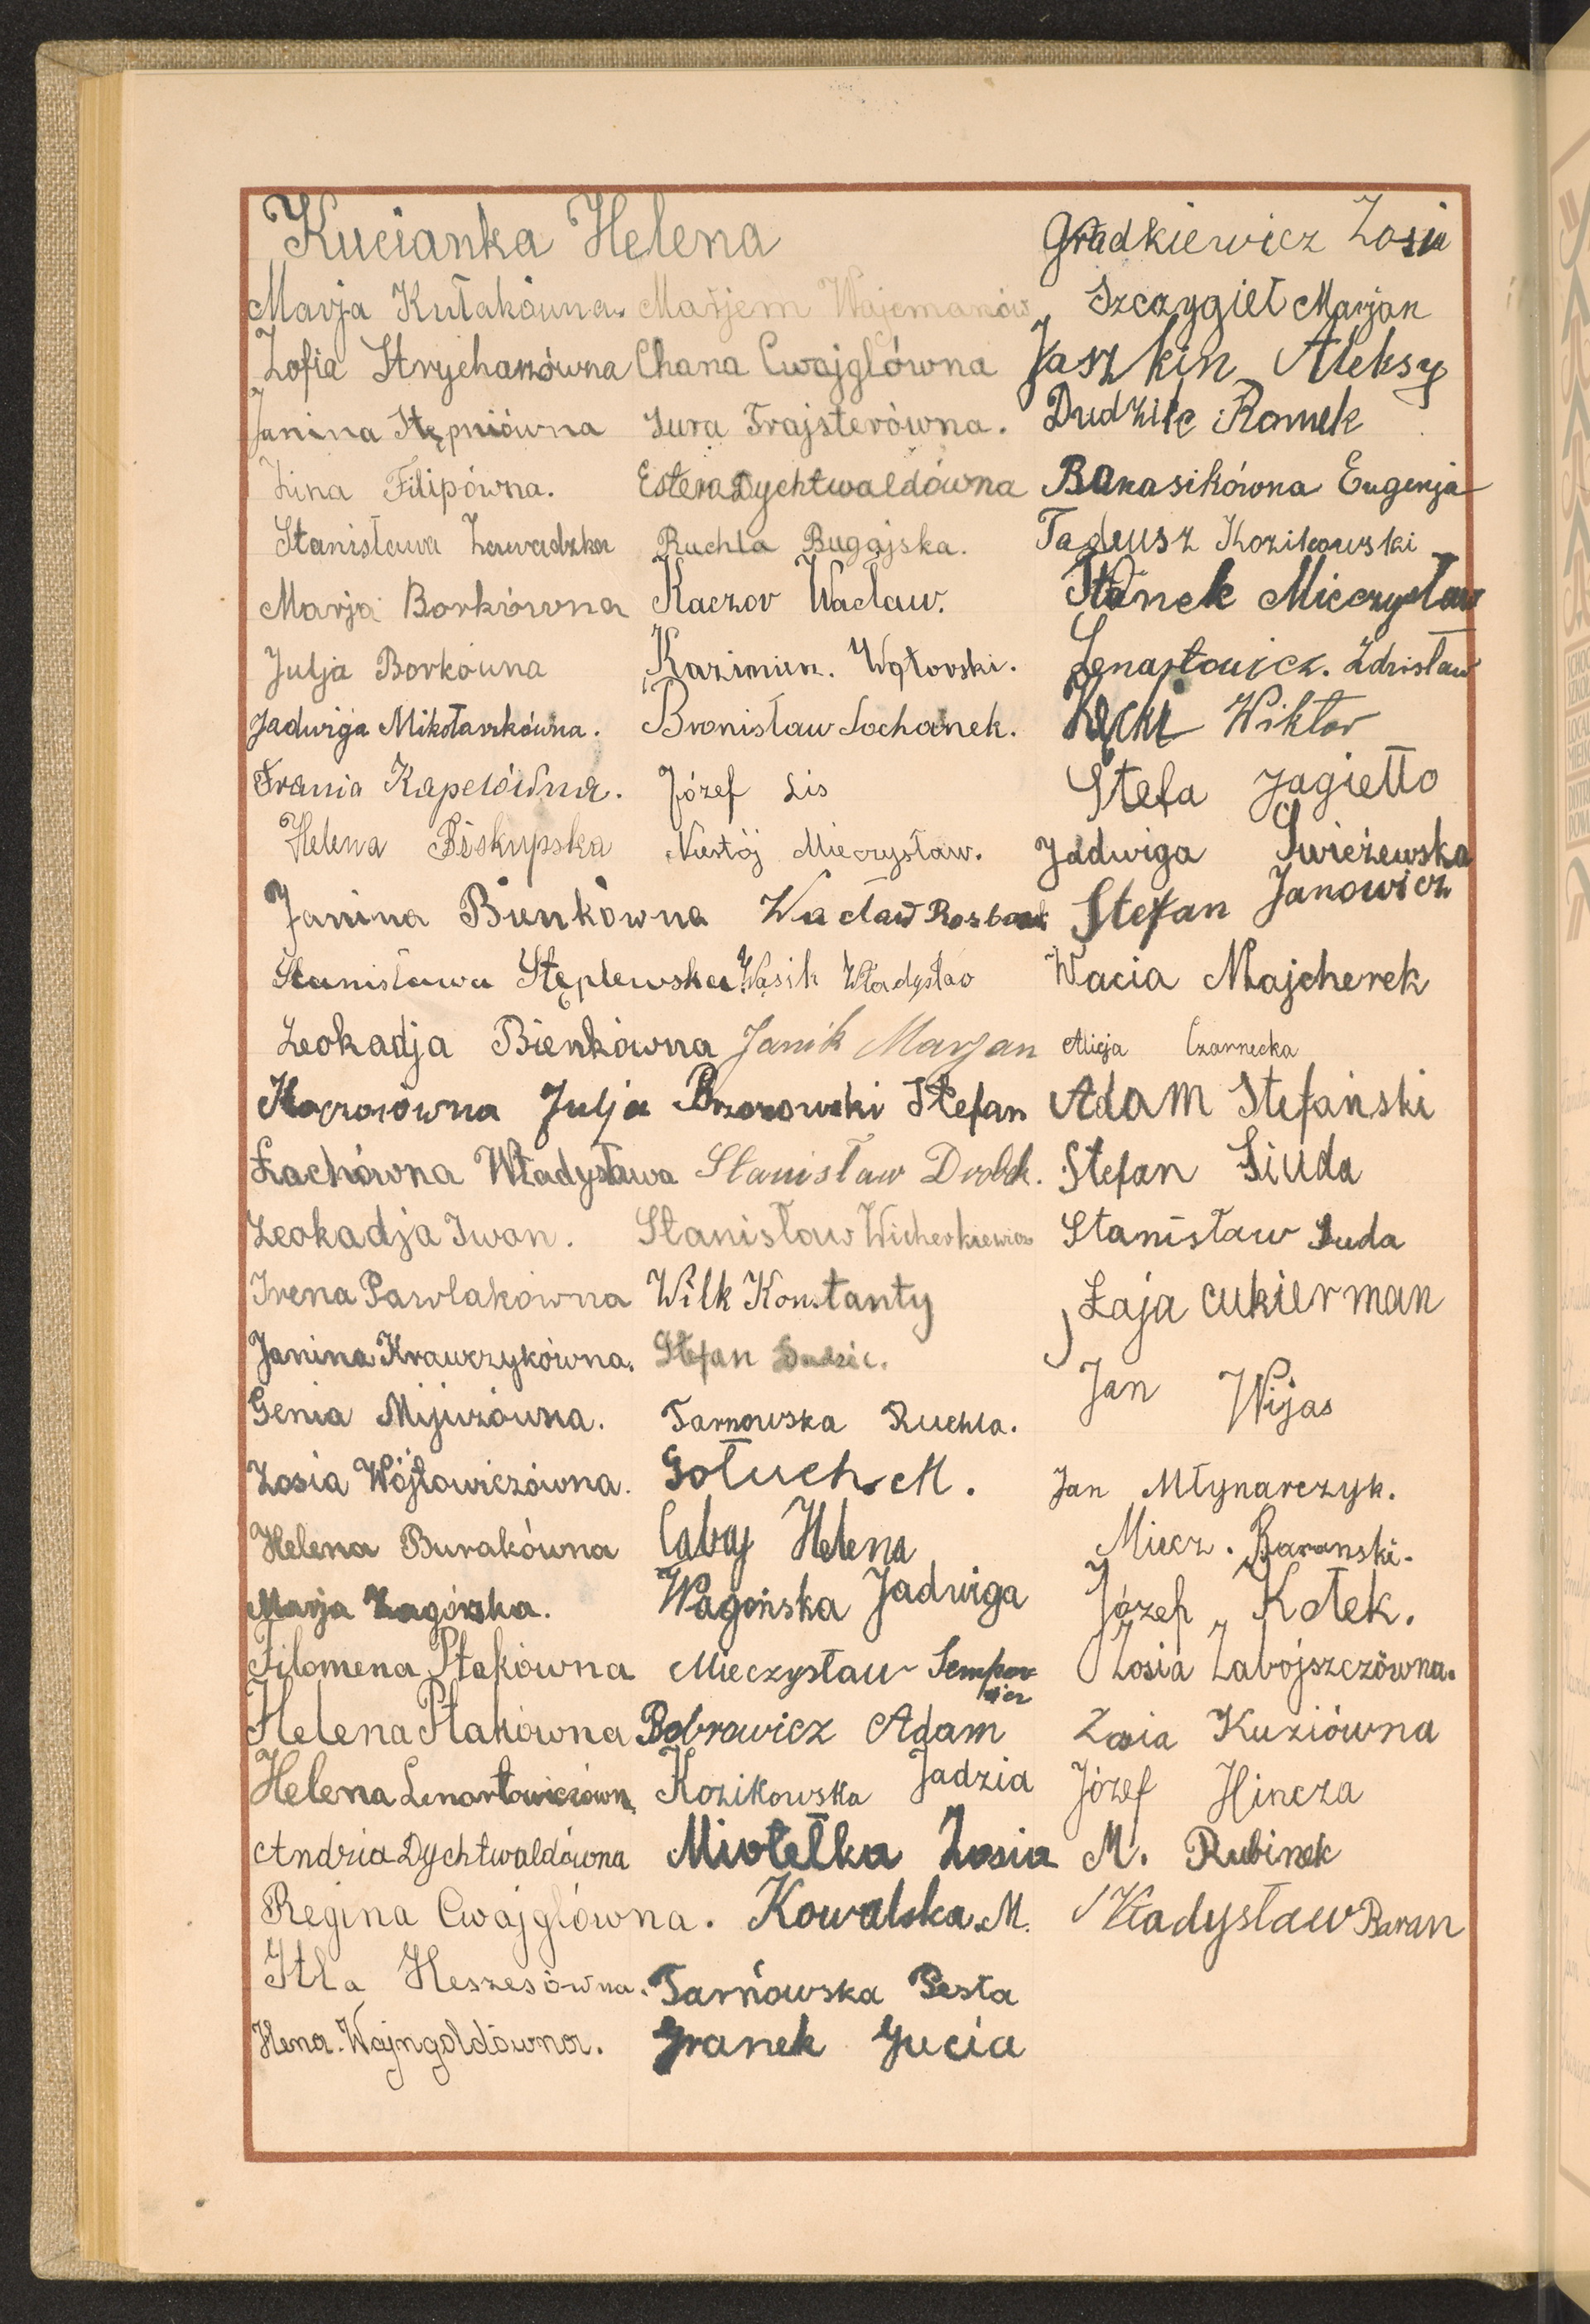 Kucianka Helena
Marja Kułakówna.
Zofia Strycharzówna
Janina Stępniówna
Zina Filipówna.
Stanisława Zawadzka
Marja Borkówna
Julja Borkówna
Jadwiga Mikołarzkówna.
Frania Kapelówna.
Helena Biskupska
Janina Bienkówna
Stanisława Stęplewska
Leokadja Bieńkówna
Julja
Łachówna Władysława
Leokadja Iwan.
Irena Pawlakówna
Janina Krawczykówna.
Genia Mijuzówna.
Zosia Wójtowiczówna.
Helena Burakówna
Marja Zagórska.
Filomena Ptakówna
Helena Ptakówna
Helena Lenartowiczówn
Andzia Dychtwaldówna
Regina Cwajglówna.
Itla Heszesówna.
Hena Wajngoldówna.
Marjem Wajcmanów
Chana Cwajglówna
Sura Trajsterówna.
Estera Dychtwaldówna
Ruchla Bugajska.
Kaczor Wacław.
Kazimierz. Wątorski.
Bronisław Sochanek.
Józef Lis
Mieczysław.
Wacław
Wasik Władysław
Janik Marjan
Brzozowski Stefan
Stanisław
Stanisław Wicherkiewicz
Wilk Konstanty
Stefan Dudzic.
Tarnowska Ruchla.
Gołuch M.
Caby Helena
Wagońska Jadwiga
Mieczysław
Bobrowicz Adam
Kozikowska Jadzia
Miotełka Zosia
Kowalska M.
Tarnowska Pesla
Granek Gucia
Gradkiewicz Zosia
Szczygieł Marjan
Jaszkin Aleksy
Dudzik Romek
Banasikówna Eugenja
Tadeusz Kozikowski
Stanek Mieczysław
Lenartowicz. Zdzisław
Kęcki Wiktor
Stefa Jagiełło
Jadwiga Świeżewska
Stefan Janowicz
Wacia Majcherek
Alicja Czarnecka
Adam Stefański
Stefan Siuda
Stanisław Suda
Łaja cukierman
Jan Wijas
Jan Młynarczyk.
Miecz. Baranski.
Józef Kotek.
Zosia Zabojszczówna.
Zosia Kuziówna
Józef Hincza
M. Rubinek
Władysław Baran